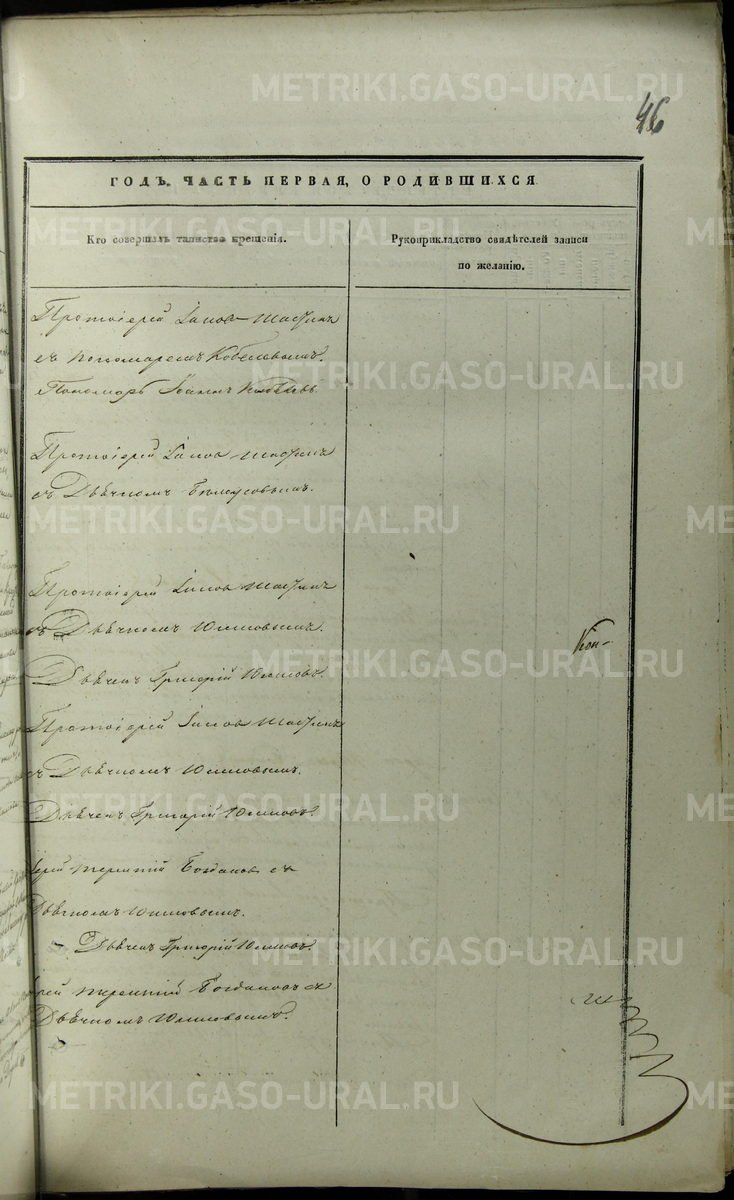 46
ГОДЪ. ЧАСТЬ ПЕРВАЯ, О РОДИВШИХСЯ
Кто совершалъ таинство крещенія.
Рукоприкладство свидѣтелей записи
по желанію.
Протоіерей Іаковъ
съ пономаремъ Кобелевымъ.
Пономарь Іоаннъ Кобелевъ.
Протоіерей Іаковъ
съ Дьячкомъ
Протоіерей Іаковъ
съ Дьячкомъ Юшковымъ.
Кон-
Дьячекъ Григорій Юшковъ.
Протоіерей Іаковъ
съ Дьячкомъ Юшковымъ.
Дьячекъ Григорій Юшковъ.
Терентій Богдановъ съ
Дьячкомъ Юшковымъ.
Дьячекъ Григорій Юшковъ.
Терентій Богдановъ съ
Дьячкомъ Юшковымъ.
METRIKI.GASO-URAL.RU